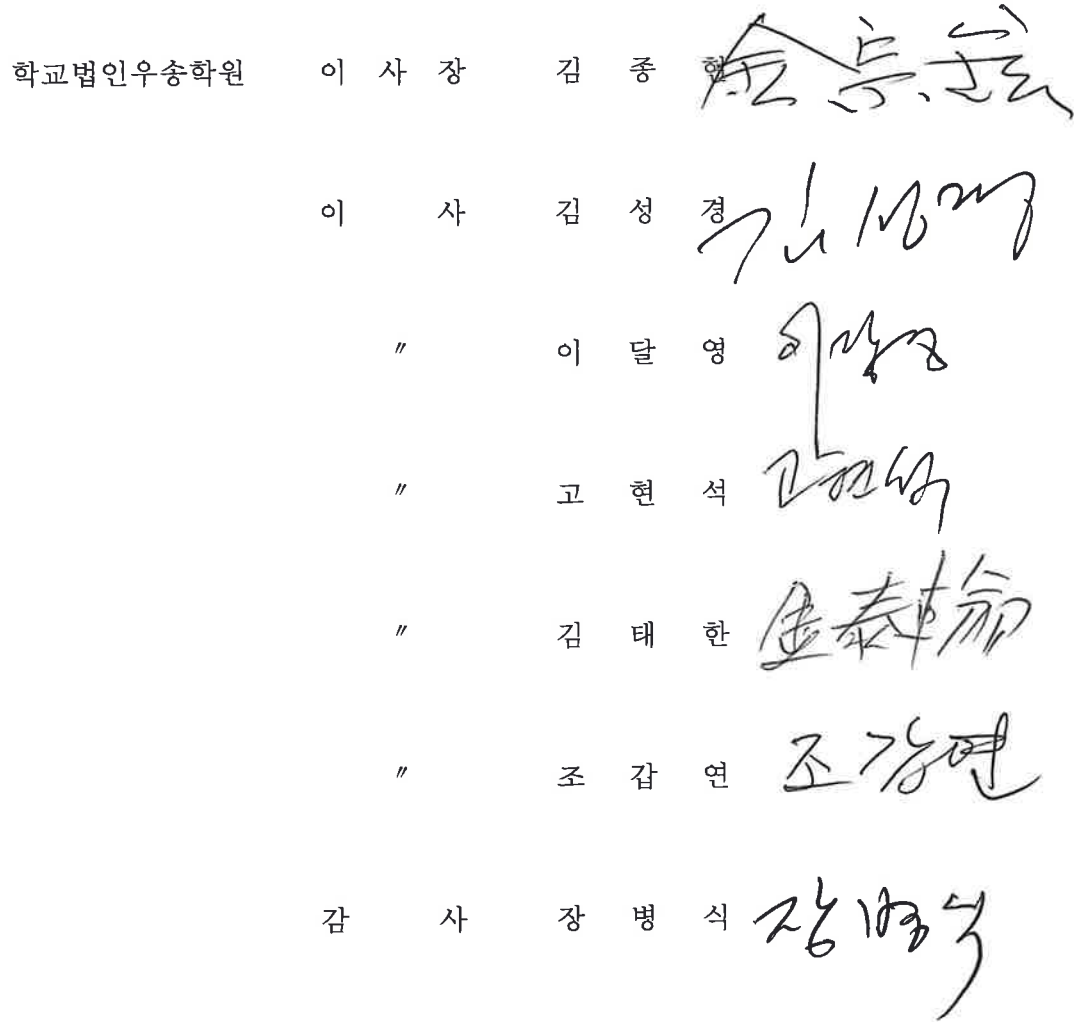 학교법인우송학원 이 사 장 김 종 현
이 사 김 성 경 김성경
〃 이 달 영 이달영
〃 고 현 석 고현석
〃 김 태 한 金泰翰
〃 조 갑 연 조갑연
감 사 장 병 식 장병식